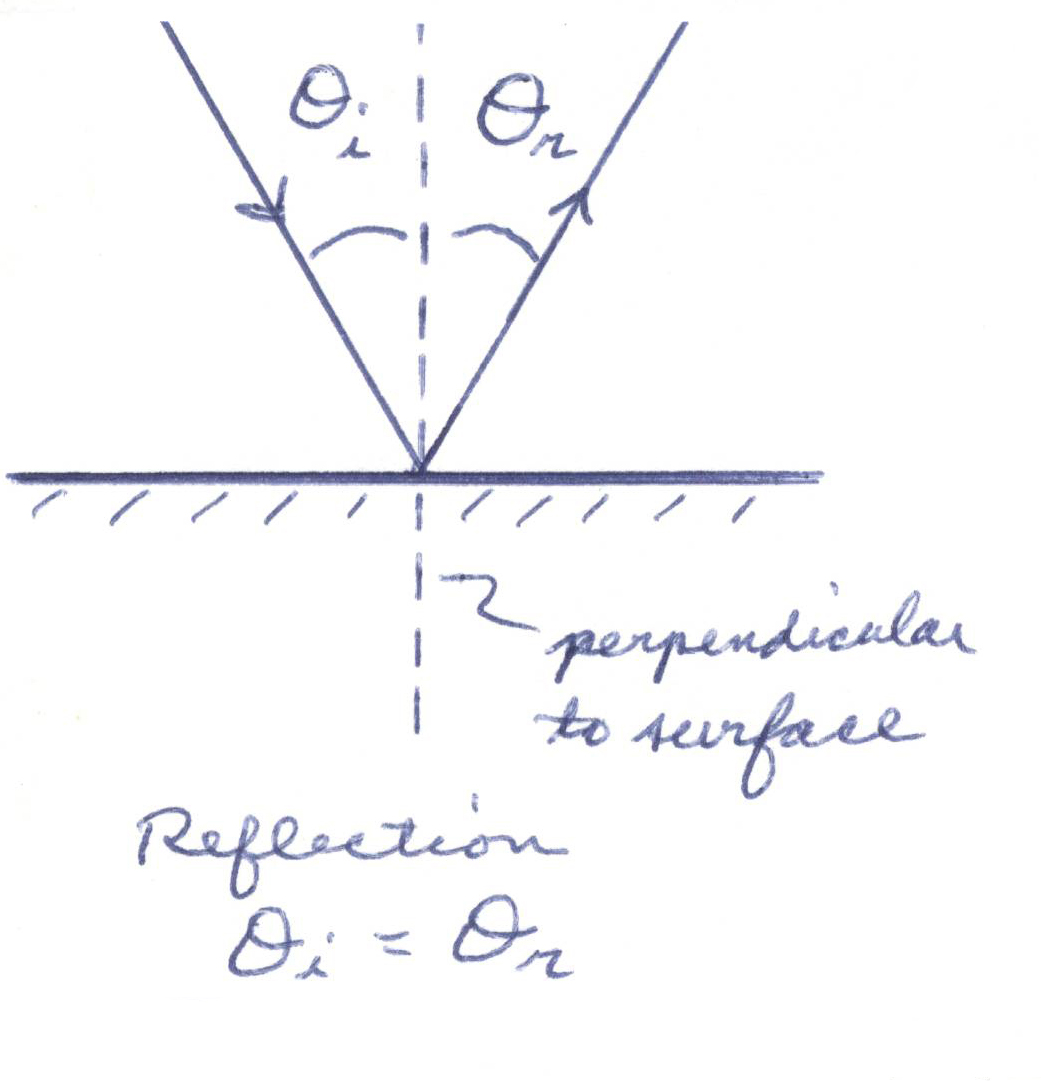 θi θr
perpendicular
to surface
Reflection
θi = θr